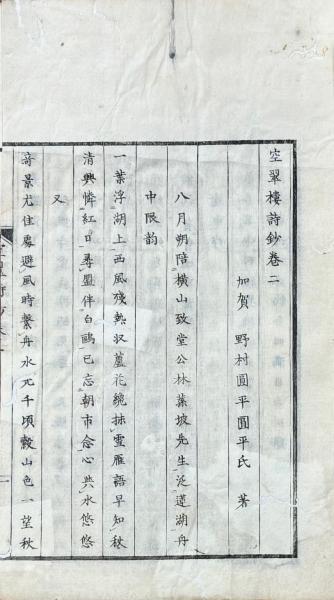 空翠樓詩鈔卷二
加賀 野村圓平圓平氏 著
八月朔陪橫山致堂公林蓀坡先生泛蓮湖舟
中限韵
一葉浮湖上西風殘熱收蘆花纔抹雪雁語早知秋
清興憐紅尋盟伴白鷗已忘朝市念心與水悠悠
又
奇景尤佳處避風時繫舟水光千頃縠山色一望秋